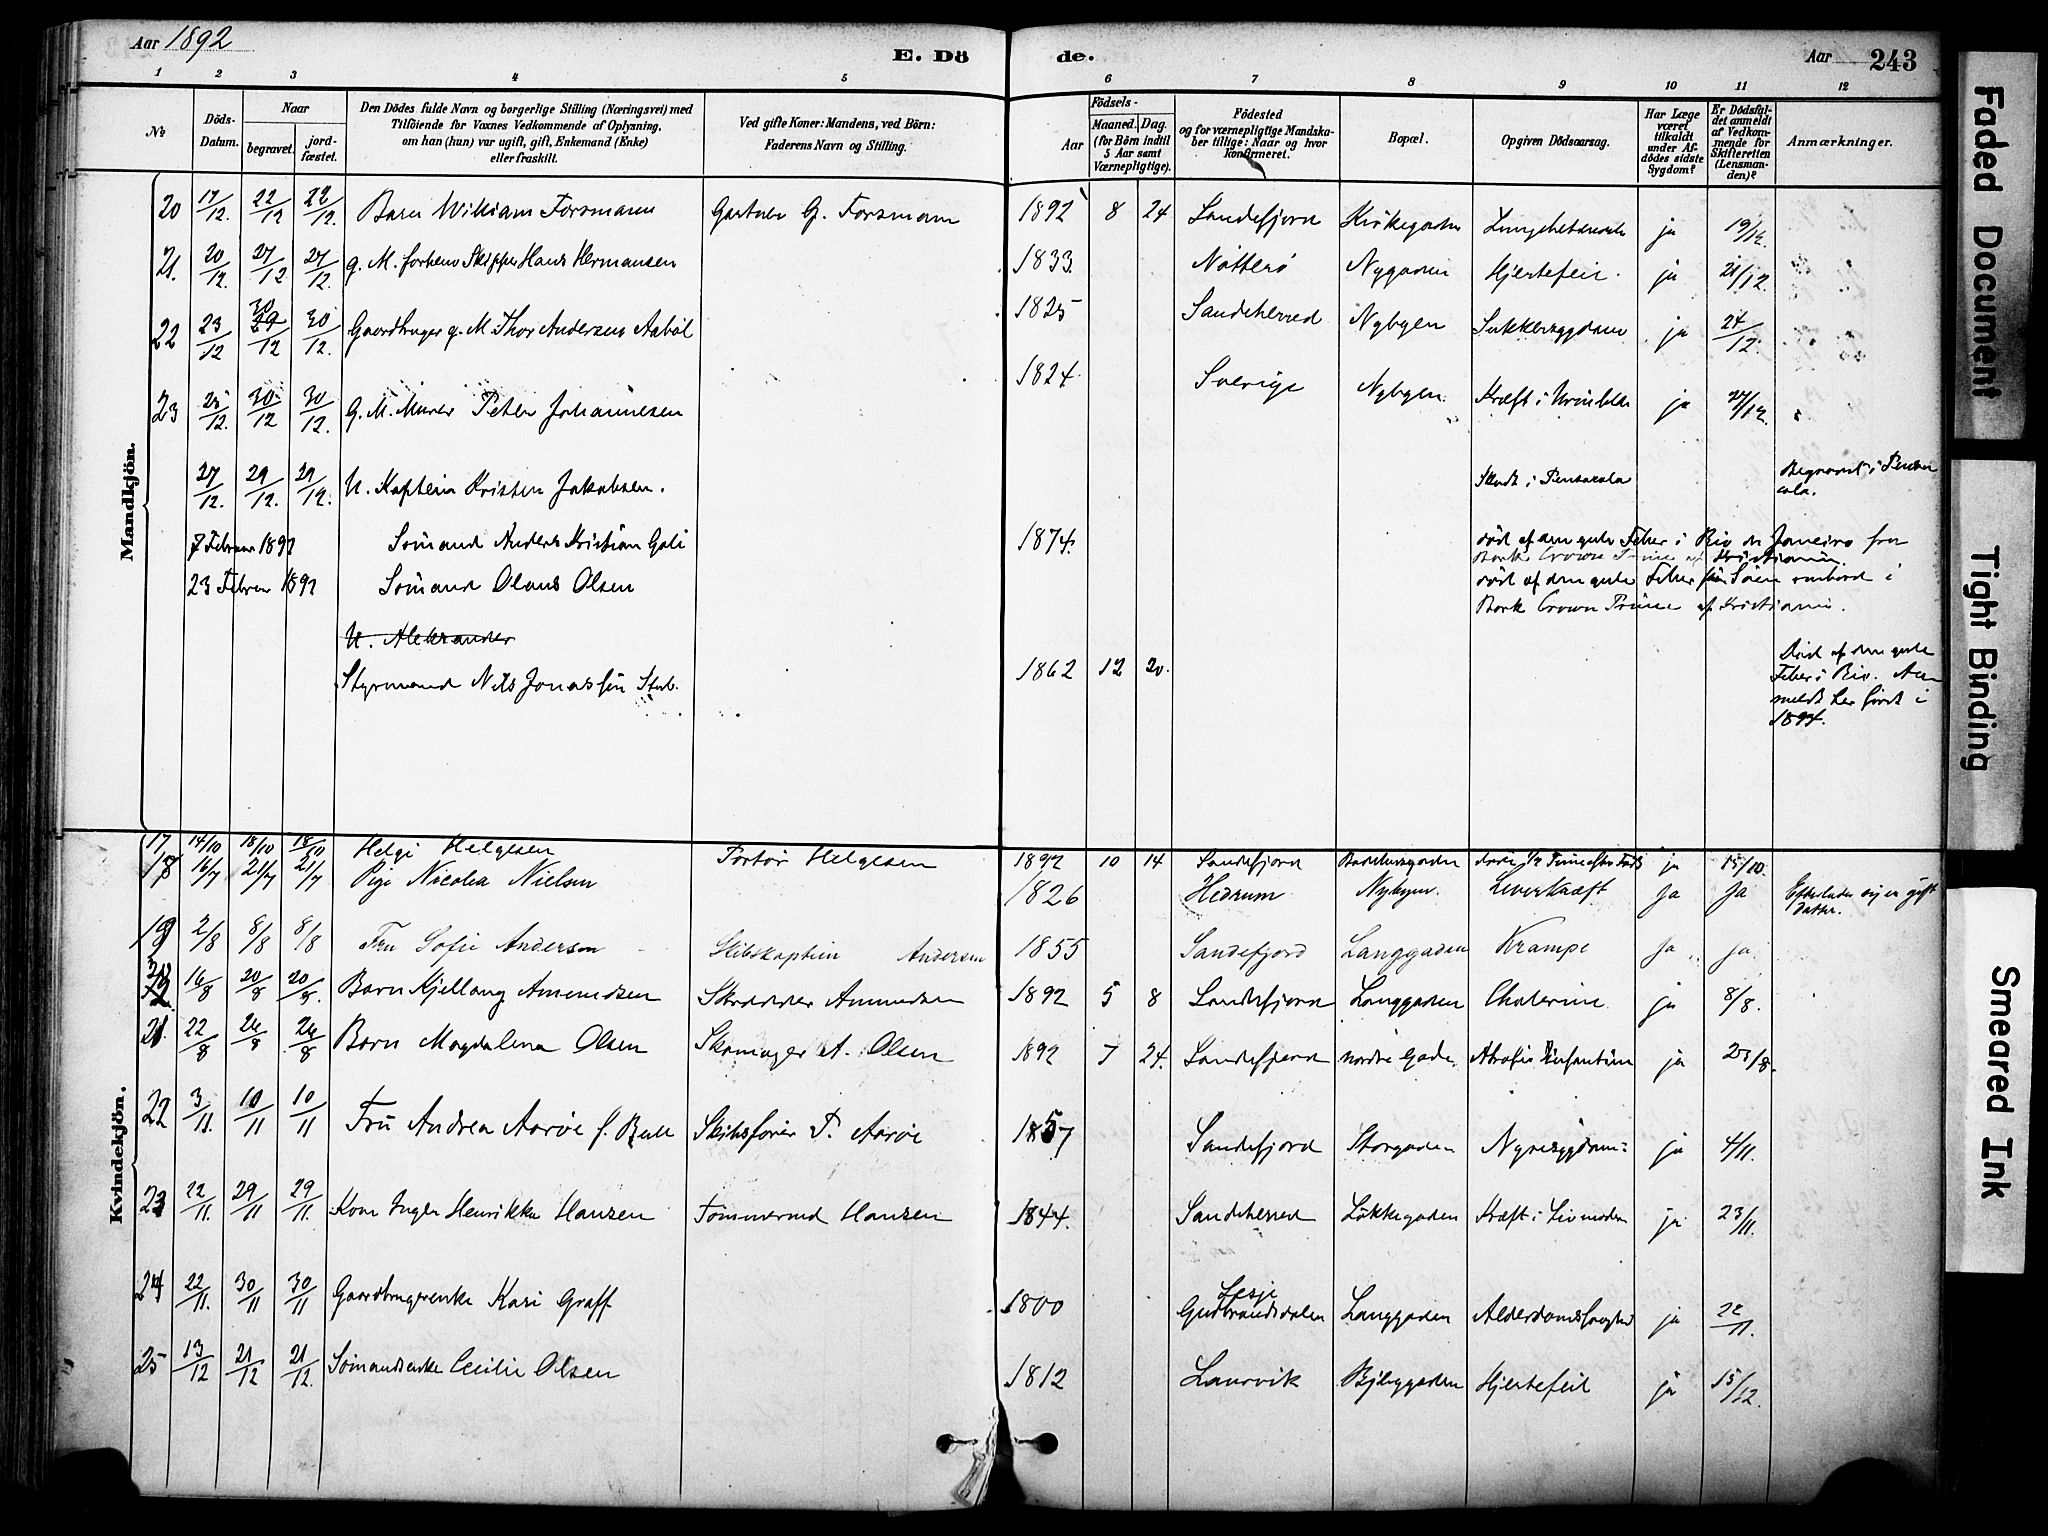 Aar 1892
E. Dö
de.
Aar
243
1 2 3 4 5 6 7 8 9 10 11 12
№
Döds-Datum.
Naar
begravet.
jord-fæstet.
Den Dödes fulde Navn og borgerlige Stilling (Næringsvei) med
Tilföiende for Voxnes Vedkommende af Oplysning,
om han (hun) var ugift, gift, Enkemand (Enke)
eller fraskilt.
Ved gifte Koner: Mandens, ved Börn:
Faderens Navn og Stilling.
Födsels-
Aar
Maaned. Dag.
(for Börn indtil
5 Aar samt
Værnepligtige).
Födested
og for værnepligtige Mandska-
ber tillige: Naar og hvor
konfirmeret.
Bopæl.
Opgiven Dödsaarsag.
Har Læge
været
tilkaldt
under Af-
dödes sidste
Sygdom?
Er Dödsfal-
det anmeldt
af Vedkom-
mende for
Skifteretten
(Lensman-
den)?
Anmærkninger.
Mandkjön.
20 17/12. 22/12 22/12. Barn William Forsmann Gartner G. Forsmann 1892 8 24 Sandefjord Kirkegaden ja 19/12.
21. 20/12. 27/12 27/12. g. M. forhenv Skipper Hans Hermansen 1833. Nötterö Nygaden Hjertefeil. ja 21/12.
22 23/12 30 29/12 30/12. Gaardbruger g. M Thor Andersen Aaböl 1825 Sandeherred Nybyen Sukkersygdom ja 24/12.
23 25/12. 30/12 30/12. G. M. Murer Peter Johannesen 1824. Sverige Nybyen. Kræft i Urinblære ja 27/12.
27/12. 29/12. 29/12. U. Kaptein Kristen Jakobsen. Skudt i Pensacola Begravet i Pensa
cola.
7 Februar 1892 Sömand Anders Kristian Gali 1874. död af den gule Feber i Rio de Janeiro fra
Bark Crown Prince af Kristiania.
23 Februar 1892 Sömand Olaus Olsen död af den gule Feber paa Söen ombord i
Bark Crown Prince af Kristiania.
U. Aleksander
Styrmand Nils Jonassen Stub. 1862 12 20. Död af den gule
Feber i Rio. An-
meldt her först i
1894.
Kvindekjön.
17 14/10 18/10 18/10 Helga Helgesen Helgesen 1892 10 14 Sandefjord ja 15/10.
18 16/7 21/7 21/7 Pige Nicolea Nielsen 1826 Hedrum Nybyen. Leverkræft Ja Ja Efterlader sig en gift
Datter.
19 2/8 8/8 8/8 Fru Sofie Anderson Skibskaptein Andersen 1855 Sandefjord Langgaden Krampe Ja ja
16/8 20/8 20/8. Barn Kjellaug Amundsen Skrædder Amundsen 1892 5 8 Sandefjord Langgaden Cholerine ja 8/8.
21. 22/8 26/8 26/8 Barn Magdalena Olsen Skomager A. Olsen 1892 7 24. Sandefjord nordre Gade. Atrofia infantum ja 23/8.
22 3/11. 10/11 10/11 Fru Andrea Aaröe f. Bull Skibsförer P. Aaröe 1857 Sandefjord Storgaden Nyresygdom ja 4/11.
23 22/11. 29/11 29/11. Kone Inger Henrikke Hansen Tömmermd Hansen 1844. Sandeherred Lökkegaden Kræft i Livmoder ja 23/11.
24 22/11. 30/11 30/11 Gaardbrugerenke Kari Graff 1800 Lesje
Gudbrandsdalen Langgaden Alderdomssvaghed ja 22/11.
25 13/12 21/12 21/12. Sömandsenke Cecilie Olsen 1812 Laurvik Bjerggaden Hjertefeil ja 15/12.
Faded Document
Tight Binding
Smeared Ink